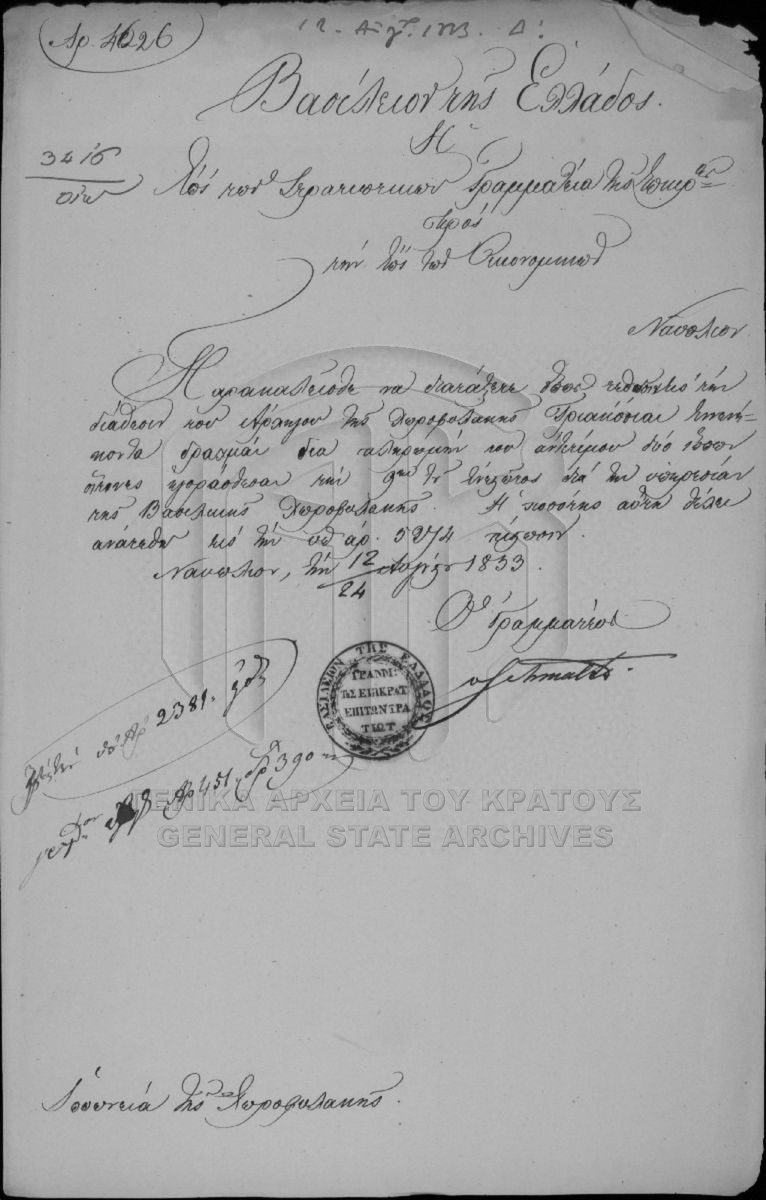 Αρ. 4626
12. Αυγ. 1833. Δ!
Βασίλειον της Ελλάδος.
Η
3416
Οικ
Επί των Στρατιωτικών Γραμματεία της Επικρ.ας
Προς
την επί των Οικονομικών
Ναύπλιον.
Παρακαλείσθε να διατάξετε όπως τεθώσιν εις την
διάθεσιν του Αρχηγού της Χωροφυλακής Τριακόσιαι Εννενή-
κοντα δραχμαί δια πληρωμήν του αντιτίμου δύο ίππων
οίτινες ηγοράσθησαν την 9 του Ενεστώτος διά την υπηρεσίαν
της Βασιλικής Χωροφυλακής. Η ποσότης αύτη θέλει
ανατεθή εις την υπ' αρ. 5274 πίστωσιν.
Ναύπλιον, την 12/24 Αυγούστου 1833.
Ο Γραμματεύς
Schmaltz.
ΒΑΣΙΛΕΙΟΝ ΤΗΣ ΕΛΛΑΔΟΣ
ΓΡΑΜΜ:
ΤΗΣ ΕΠΙΚΡΑΤ
ΕΠΙ ΤΩΝ ΣΤΡΑ
ΤΙΩΤ
υπ' Αρ 2381.
Αρ 451 Δρ 390
ΓΕΝΙΚΑ ΑΡΧΕΙΑ ΤΟΥ ΚΡΑΤΟΥΣ
GENERAL STATE ARCHIVES
Ιππωνεία της Χωροφυλακής.